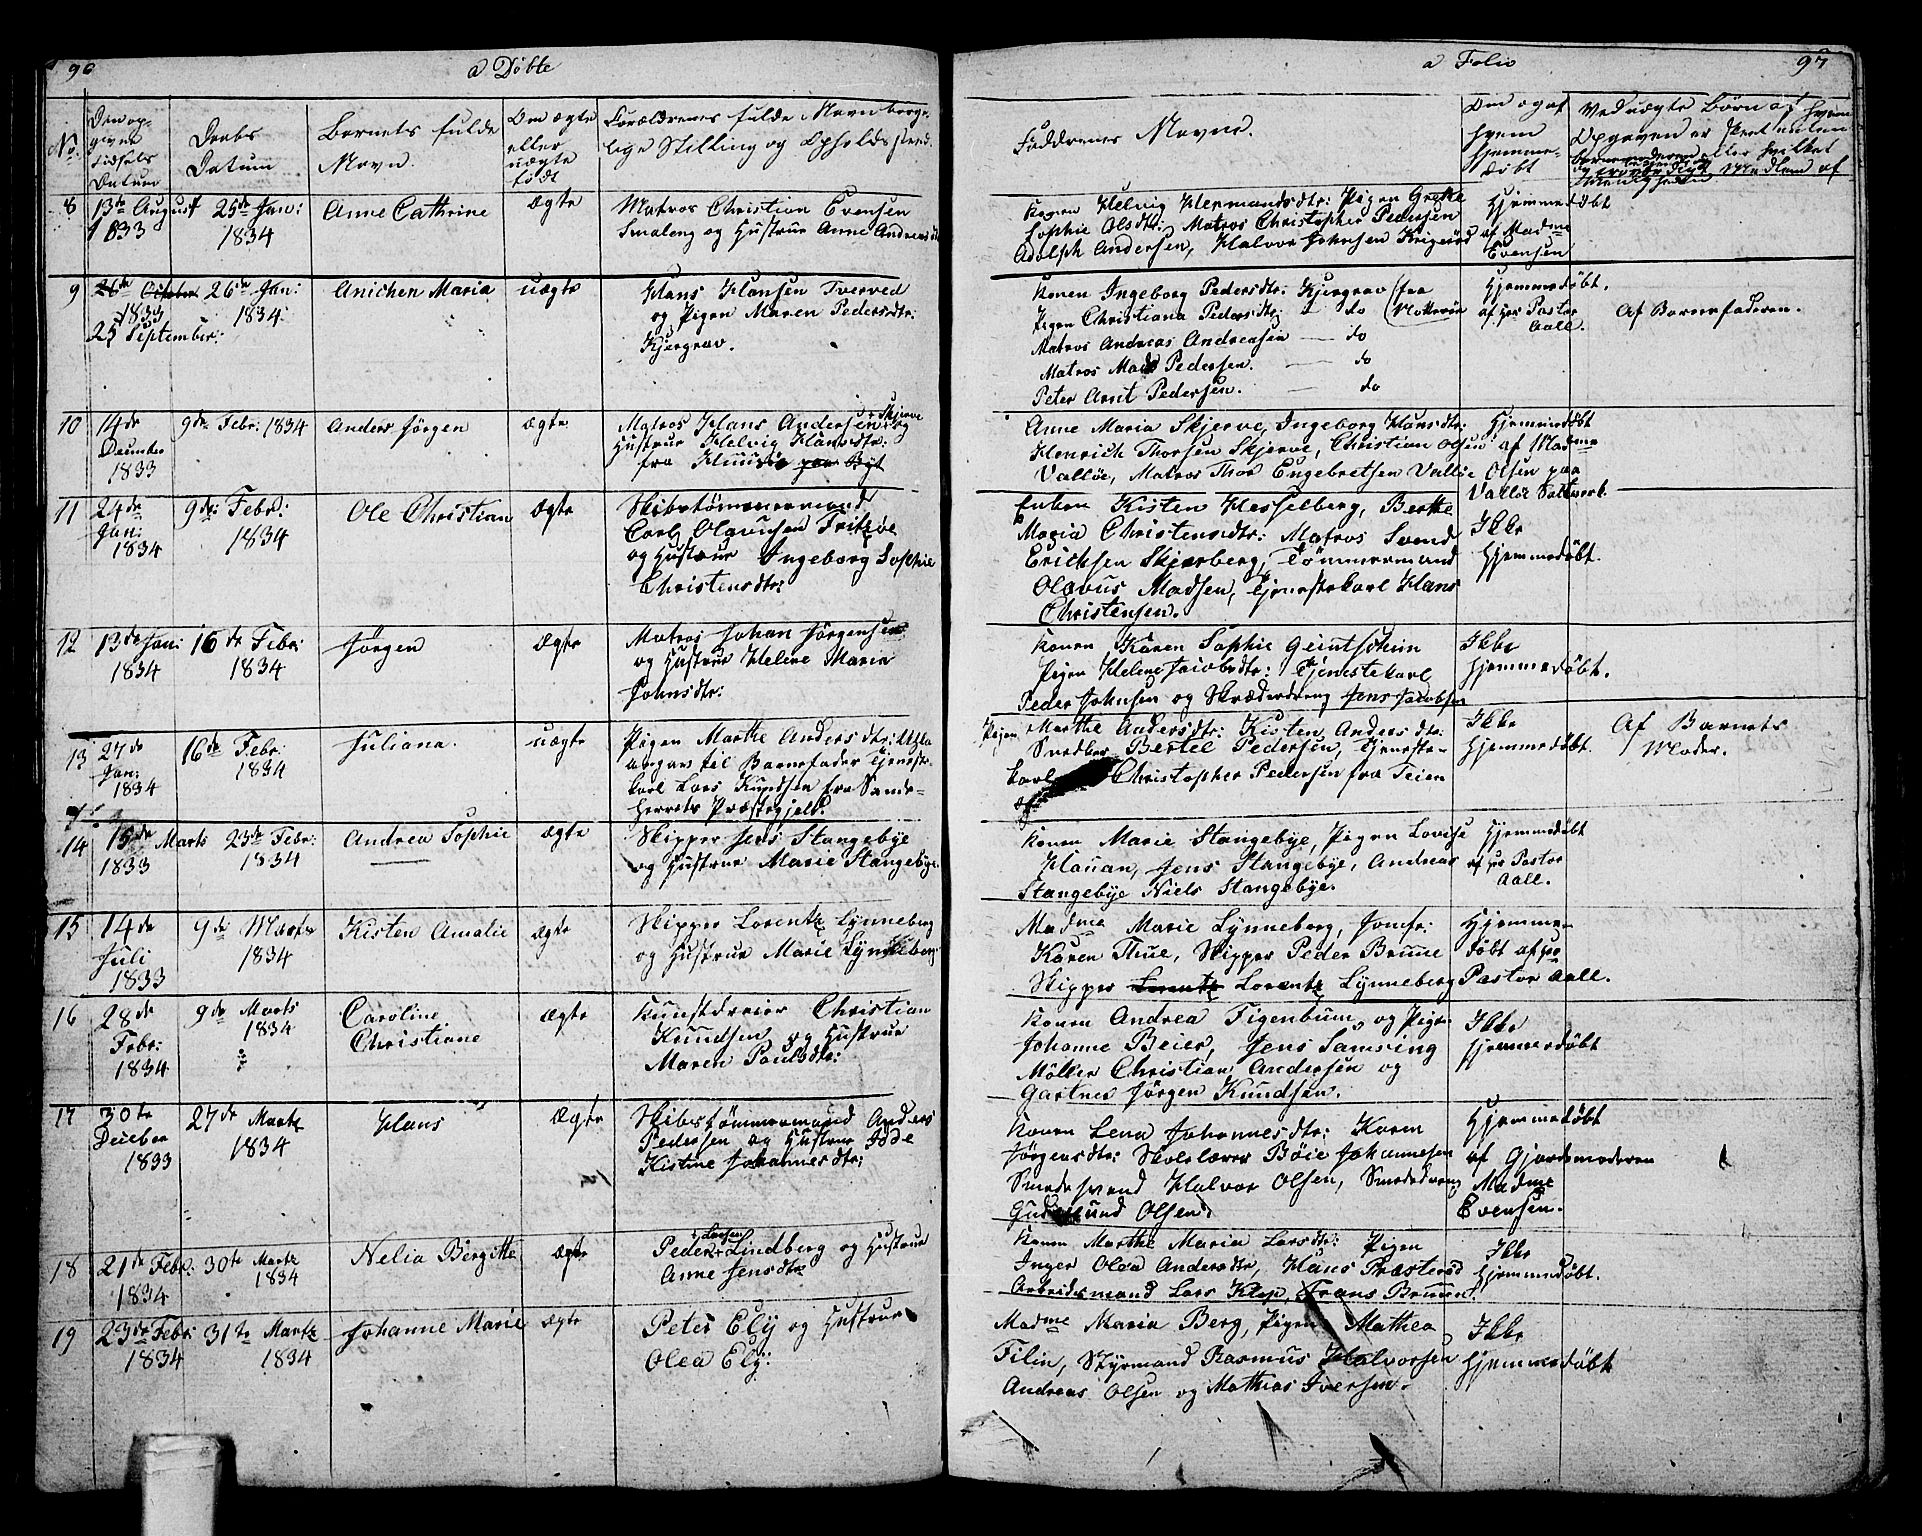 96
a Døbte
No:
Den op-
givne
Fødsels
Datum
Daabs
Datum
Barnets fulde
Navn.
Om ægte
eller
uægte
født
Forældrenes fulde Navn borger-
lige Stilling og Opholdssted.
8 13de August 25de Jan: Anne Cathrine Ægte Matros Christian Evensen
1833 1834 Smaleng og Hustrue Anne Andreasdtr
9 26de October 26de Jan: Anichen Maria uægte Hans Hansen Tverved
1833 1834 og Pigen Maren Pedersdtr:
25 September: Kjergrav.
10 14de 9de Febr: 1834 Anders Jørgen ægte Matros Hans Andersen Skjerve og
December Hustrue Helvig Hansdtr:
1833 fra
11 24de 9de: Febr: Ole Christian Ægte Skibstømmermand
Jan: 1834 Carl Olavusen Fritzøe
1834 og Hustrue Ingeborg Sophie
Christensdtr:
12 13de Jan: 16de Febr: Jørgen Ægte Matros Johan Jørgensen
1834 1834 og Hustrue Helene Maria
Johnsdtr:
13 27de 16de Febr: Juliana. uægte Pigen Marthe Andersdtr:
Jan: 1834 til Barnefader Tjeneste-
1834 karl Lars Knudsen fra Sande-
herreds Præstegjeld.
14 15de Marts 23de Febr: Andrea Sophie ægte Skipper Jens Stangebye
1833 1834 og Hustrue Marie Stangebye.
15 14de 9de Marts Kisten Amalie ægte Skipper Lorentz Lynneberg
Juli 1834 og Hustrue Marie Lynneberg
1833
16 28de 9de Marts Caroline ægte Kunstdreier Christian
Febr: 1834 Christiane Knudsen og Hustrue
1834 Maren Paulsdtr:
17 30te 27de Marts Hans Ægte Skibstømmermand Anders
Deceber 1834 Pedersen og Hustrue Idde
1833 Kistine Johannesdtr:
18 21de Febr: 30te Marts Nelia Bergitte ægte Peder Larsen Lindberg og Hustrue
1834 1834 Anne Jensdtr
19 23de Febr: 31te Marts Johanne Marie ægte Peter Ely og Hustrue
1834 1834 Olea Ely:
a Folio
97
Faddrenes Navne.
Om og af
hvem
hjemme-
døbt
Ved uægte Børn af hvem
Opgaven er skeet
Konen Helvig Hermandsdtr: Pigen Grethe Hjemmedøbt
Sophie Olsdtr: Matros Christopher Pedersen af Madme
Adolph Andersen, Halvor Johnsen Krigerød Evensen
Konen Ingeborg Pedersdtr: Kjergrav (fra Hjemmedøbt.
Pigen Christiana Pedersdtr: do (Nøtterøe af Hr Pastor Af Barnefaderen.
Matros Andreas Andreasen — do Aall.
Matros Mads Pedersen. — do
Peter Arnt Pedersen. — do
Anne Maria Skjerve, Ingeborg Hansdtr: Hjemmedøbt
Henrich Thorsen Skjerve, Christian Olsen af Madme
Valløe, Matros Thor Engebretsen Valløe Olsen paa
Valløe Saltverk.
Enken Kisten Hesselberg, Berthe
Maria Christensdtr: Matros Svend Ikke
Erichsen Skjerberg, Tømmermand Hjemmedøbt.
Olavus Madsen, Tjenestekarl Hans
Christensen.
Konen Karen Sophie Ikke
Pigen Helene Jacobsdtr: Tjenestekarl Hjemmedøbt.
Peder Johnsen og Skrædderdreng Jens Jacobsen
Pigen Marthe Andersdtr: Kisten Andersdtr: Ikke Af Barnets
Snedker Bertel Pedersen, Tjeneste- Hjemmedøbt. Moder.
karl Christopher Pedersen fra Teien
Konen Marie Stangebye, Pigen Lovise Hjemmedøbt
Hauan, Jens Stangebye, Andreas af Hr Pastor
Stangebye Niels Stangebye. Aall.
Madme Marie Lynneberg, Jomfr: Hjemme-
Karen Thue, Skipper Peder Bruue døbt af Hr
Skipper Lorentz Lorentz Lynneberg Pastor Aall.
Konen Andrea Figenbaum, og Pige Ikke
Johanne Beier, Jens Samsing Hjemmedøbt
Møller Christian Andersen og
Gartner Jørgen Knudsen.
Konen Lena Johannesdtr: Karen Hjemmedøbt
Jørgensdtr: Skolelærer Bøie Johannesen af Gjordemoderen
Smedesvend Halvor Olsen, Smededreng Madme
Gudmund Olsen. Evensen.
Konen Marthe Maria Larsdtr: Pigen Ikke
Inger Olea Andersdtr, Hans Præsterød Hjemmedøbt.
Arbeidsmand Lars Klop, Frans Bruun.
Madme Maria Berg, Pigen Mathea Ikke
Filin, Styrmand Rasmus Halvorsen Hjemmedøbt
Andreas Olsen og Mathias Iversen.